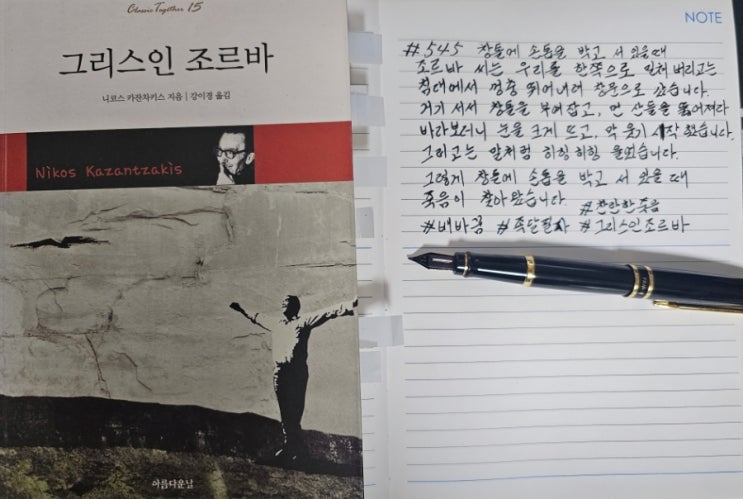 Classic Together 15
그리스인 조르바
니코스 카잔차키스 지음 | 강이경 옮김
Nikos Kazantzakis
아름다운날
NOTE
#545 창틀에 손톱을 박고 서 있을 때
조르바 씨는 우리를 한쪽으로 밀쳐 버리고는
침대에서 껑충 뛰어내려 창문으로 갔습니다.
거기 서서 창틀을 부여잡고, 먼 산들을 뚫어져라
바라보더니 눈을 크게 뜨고, 막 웃기 시작 했습니다.
그러고는 말처럼 히힝 히힝 울었습니다.
그렇게 창틀에 손톱을 박고 서 있을 때
죽음이 찾아왔습니다 #찬란한 죽음
#배바꿈 #족달필사 #그리스인조르바